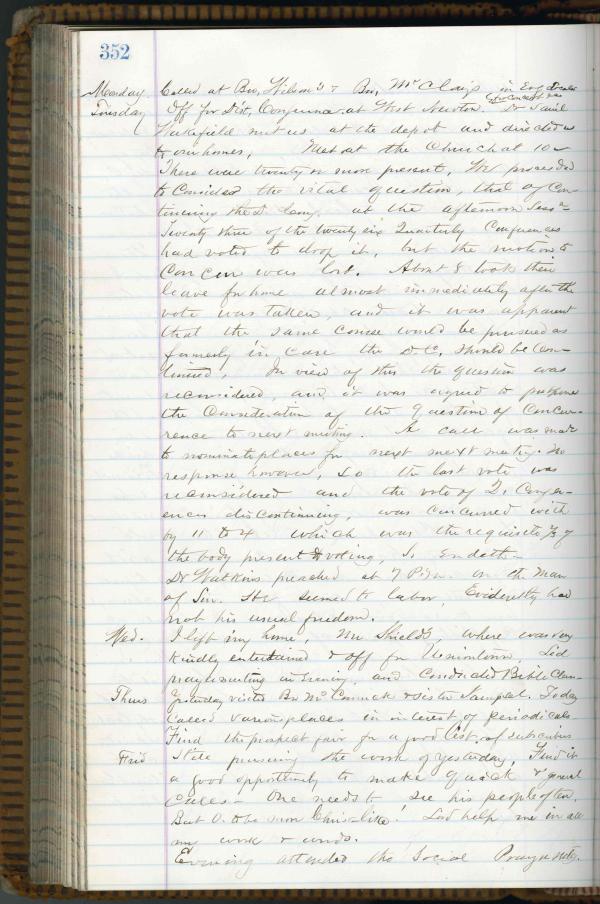 352
Monday Called at Bro, Wilson's & Bro, McClay's in
Tuesday Off for Dist, Conference at West Newton. Dr
Wakefield met us at the depot and directed us
to our homes, Met at the Church at 10
There were twenty or more present, We proceeded
to Consider the vital question, that of Con-
tinuing the D. Conf. at the afternoon Sess-
Twenty three of the twenty six Quarterly Conferences
had voted to drop it, but the motion to
Concur was lost. About 8 took their
leave for home almost immediately after the
vote was taken, and it was apparent
that the same Course would be pursued as
formerly in Case the D.C. should be Con-
tinued, In view of this the question was
reconsidered, and it was agreed to postpone
the Consideration of the question of Concur-
rence to next meeting. A call was made
to nominate places for next meeting. No
response however, so the last vote was
reconsidered and the vote of Q. Confer-
ences discontinuing, was Concurred with
by 11 to 4 which was the requisite 2/3 of
the body present & voting, So Endeth-
Dr Watkins preached at 7 P.m. on the Man
of Sin. He seemed to labor, Evidently had
not his usual freedom.
Wed. I left my home, Mr Shields, where was very
kindly entertained & off for Uniontown. Led
prayer meeting in Evening, and Conducted Bible Class
Thurs Yesterday visited Bro McCormick & Sister. Today
Called various places in interest of periodicals-
Find the prospect fair for a good list of subscribers
Frid Still pursuing the work of yesterday, Find it
a good opportunity to make quick & general
Calls- One needs to see his people often.
But O to be more Christ-like! Lord help me in all
my work & words.
Evening attended the Social Prayer Mtg.